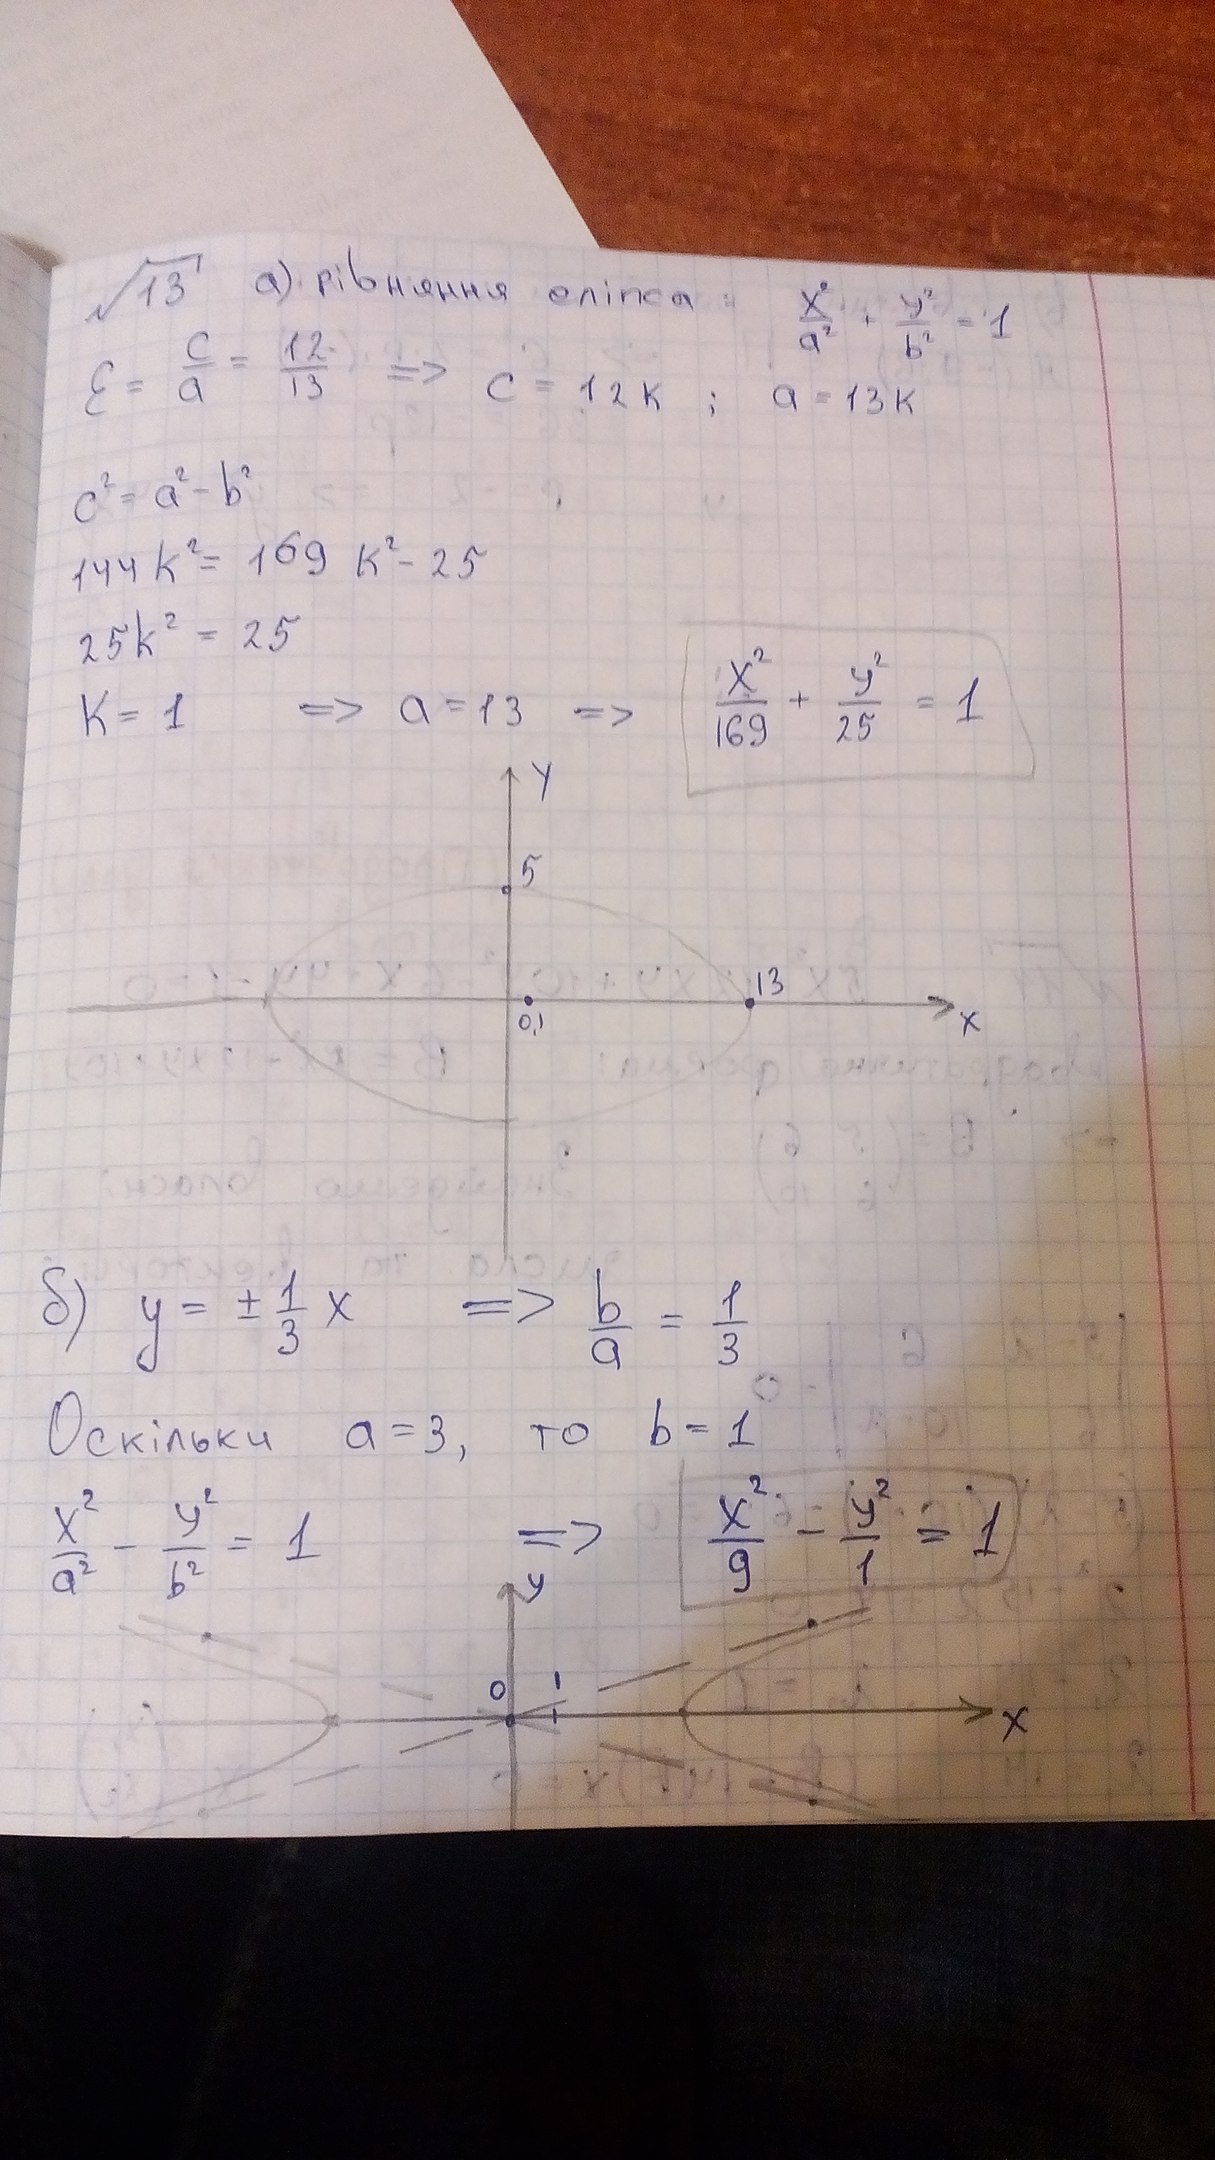 √13 а) рівняння еліпса: x²/a² + y²/b² = 1
ε = c/a = 12/13 => c = 12k ; a = 13k
c² = a² - b²
144k² = 169k² - 25
25k² = 25
k = 1 => a = 13 => x²/169 + y²/25 = 1
y
5
13
0,1
x
б) y = ± 1/3 x => b/a = 1/3
Оскільки a = 3, то b = 1
x²/a² - y²/b² = 1 => x²/9 - y²/1 = 1
y
0 1
x